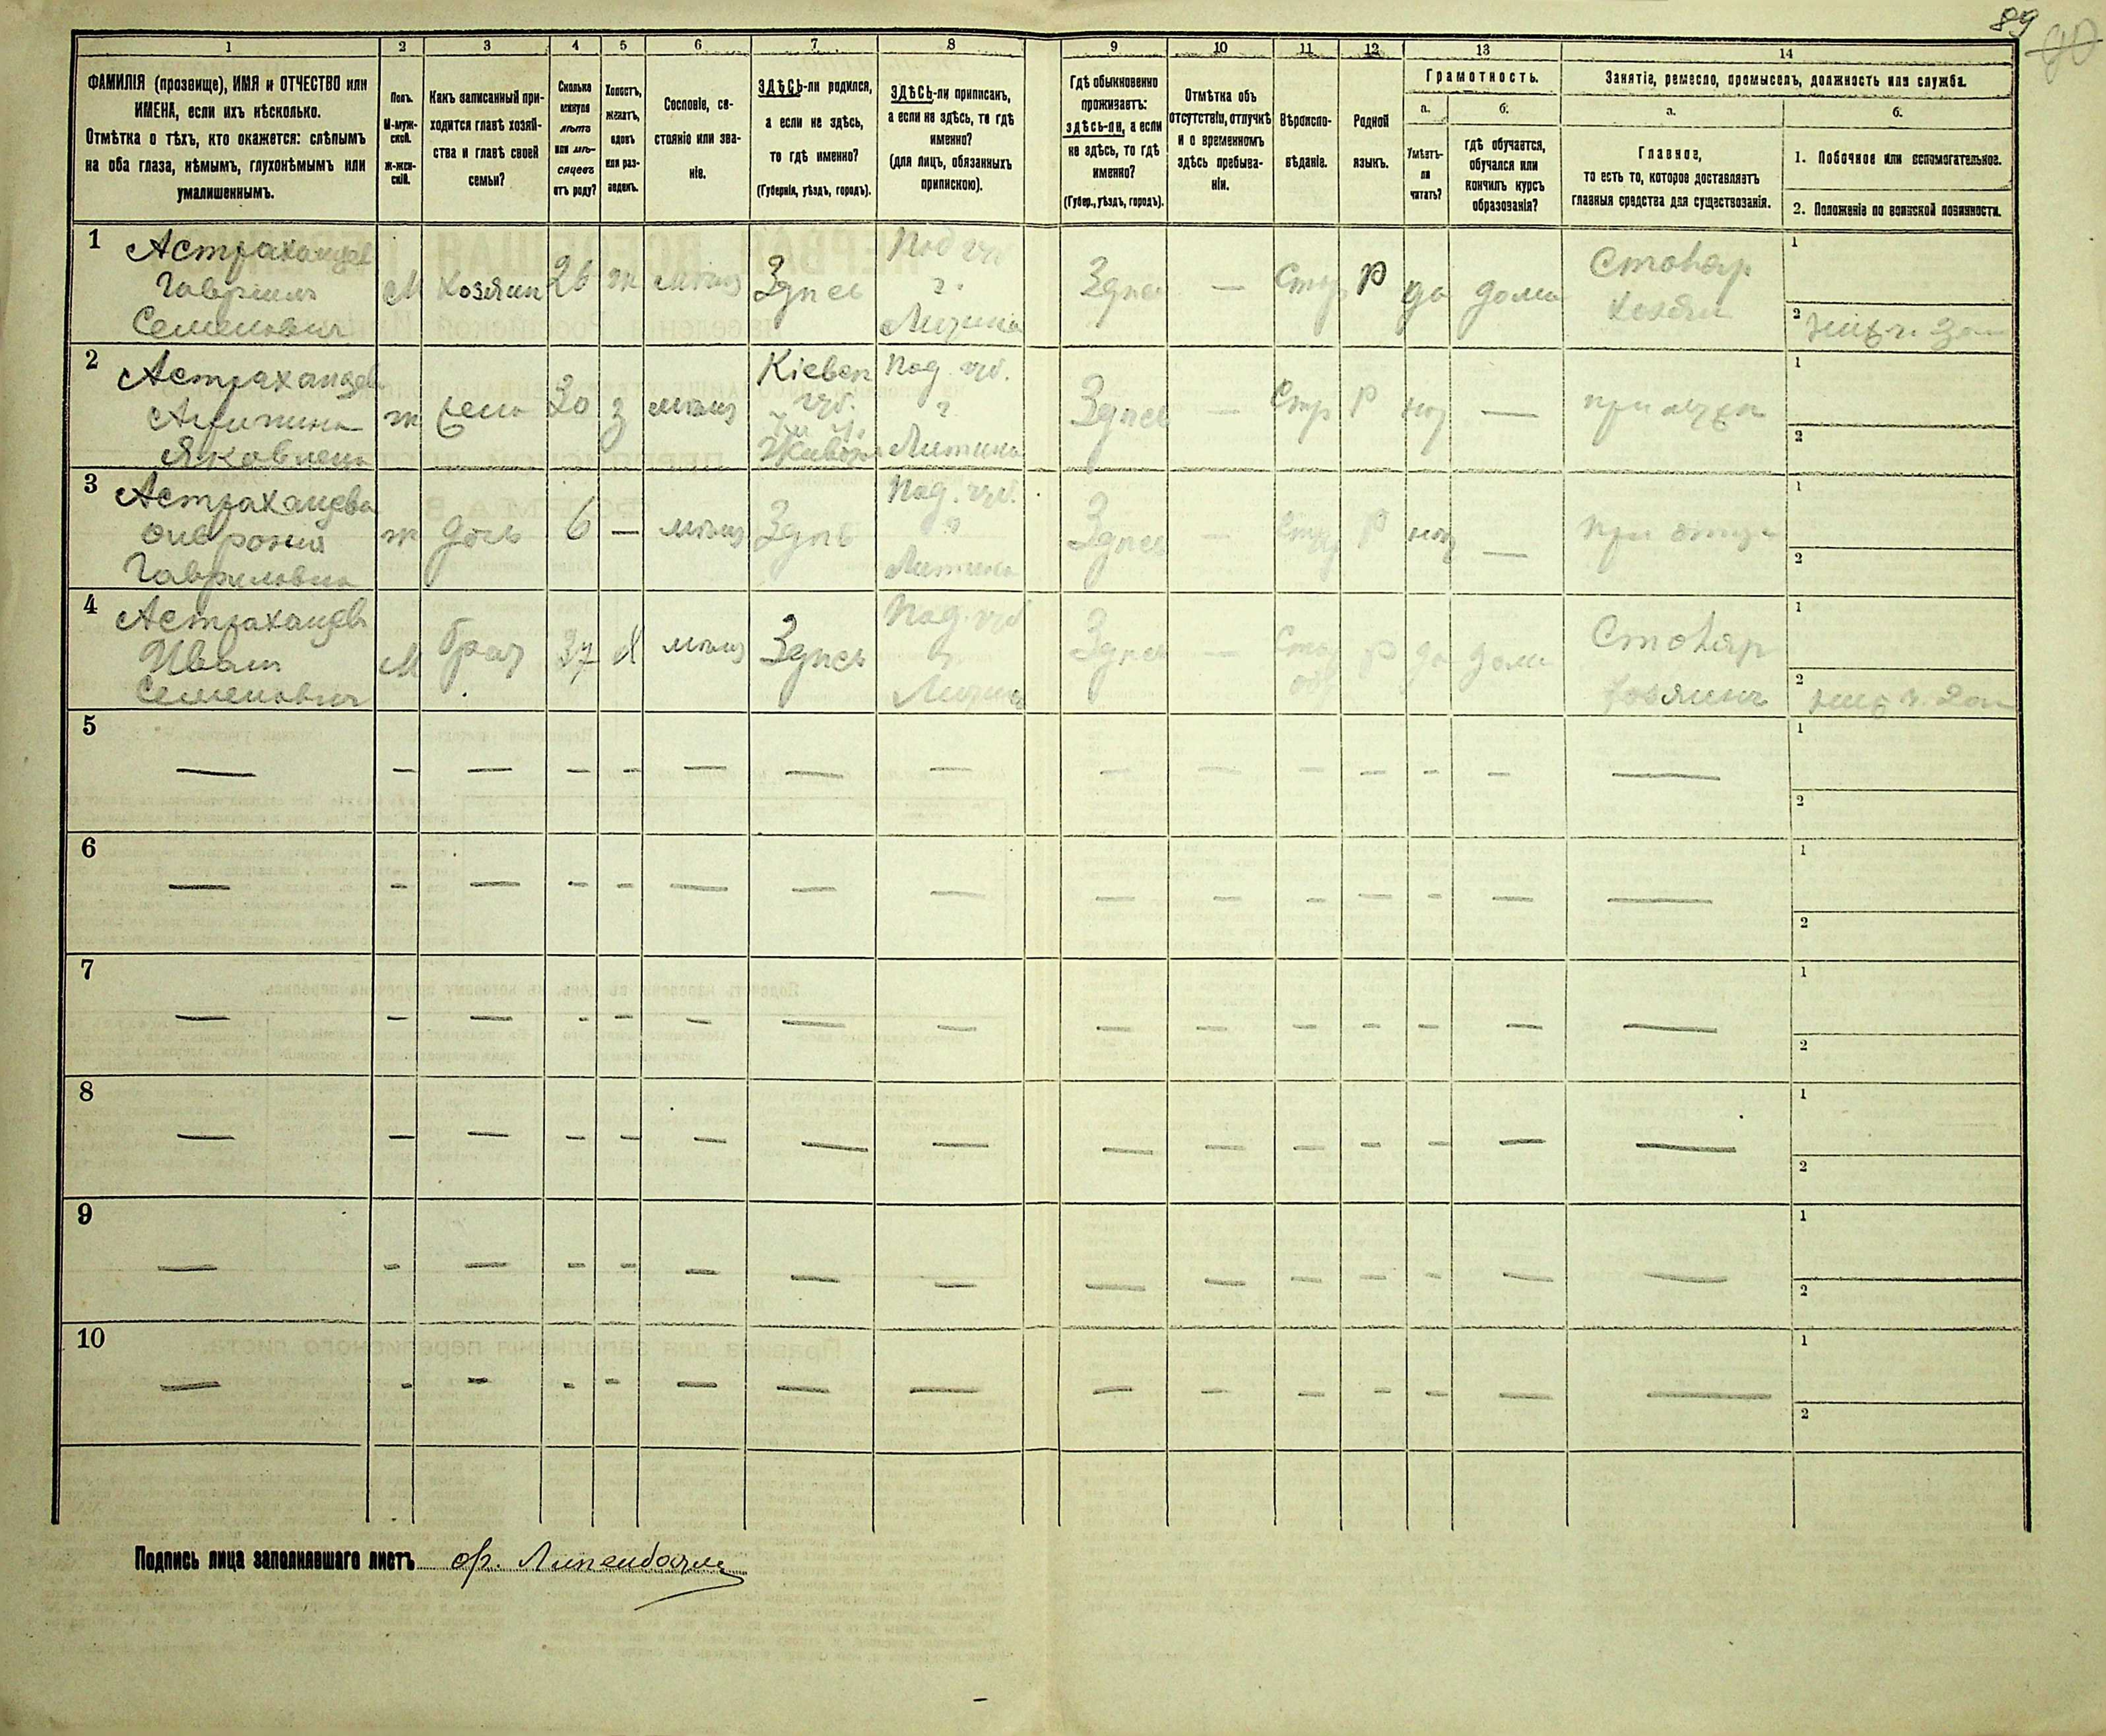 89
90
1 2 3 4 5 6 7 8 9 10 11 12 13 14
ФАМИЛІЯ (прозвище), ИМЯ и ОТЧЕСТВО или
ИМЕНА, если ихъ нѣсколько.
Отмѣтка о тѣхъ, кто окажется: слѣпымъ
на оба глаза, нѣмымъ, глухонѣмымъ или
умалишеннымъ.
Полъ.
М-муж-
ской.
ж-жен-
скій.
Какъ записанный при-
ходится главѣ хозяй-
ства и главѣ своей
семьи?
Сколько
минуло
лѣтъ
или мѣ-
сяцевъ
отъ роду?
Холостъ,
женатъ,
вдовъ
или раз-
веденъ.
Сословіе, со-
стояніе или зва-
ніе.
ЗДѢСЬ-ли родился,
а если не здѣсь,
то гдѣ именно?
(Губернія, уѣздъ, городъ).
ЗДѢСЬ-ли приписанъ,
а если не здѣсь, то гдѣ
именно?
(для лицъ, обязанныхъ
припискою).
Гдѣ обыкновенно
проживаетъ:
здѣсь-ли, а если
не здѣсь, то гдѣ
именно?
(Губер., уѣздъ, городъ).
Отмѣтка объ
отсутствіи, отлучкѣ
и о временномъ
здѣсь пребыва-
ніи.
Вѣроиспо-
вѣданіе.
Родной
языкъ.
Грамотность.
а.
Умѣетъ-
ли
читать?
б.
гдѣ обучается,
обучался или
кончилъ курсъ
образованія?
Занятіе, ремесло, промыселъ, должность или служба.
а.
Главное,
то есть то, которое доставляетъ
главныя средства для существованія.
б.
1. Побочное или вспомогательное.
2. Положеніе по воинской повинности.
1 Астраханцев
Гавріилъ
Семеновичъ
М Хозяин 26 ж мѣщ Здпсь
Под губ
г.
Литина
Здпсь — Стар Р да дома
Столяр
Хозяин
1
2
2 Астраханцев
Агипина
Яковлена
ж жена 30 з мѣщ
Кіевск
губ.
Под. губ.
г
Литина
Здпсь — Стр Р нет —
при мужп
1
2
3 Астраханцева
Февронія
Гавриловна
ж дочь 6 — мѣщ Здпсь
Под. губ.
г
Литина
Здпсь — Стар Р нет —
при отцп
1
2
4 Астраханцев
Иван
Семеновичъ
М брат 37 Х мѣщ Здпсь
Под. губ
г
Литина
Здпсь — Стар обр Р да дома
Столяр
хозяинъ
1
2
5 — — — — — — — — — — — — — — — 1
2
6 — — — — — — — — — — — — — — — 1
2
7 — — — — — — — — — — — — — — — 1
2
8 — — — — — — — — — — — — — — — 1
2
9 — — — — — — — — — — — — — — — 1
2
10 — — — — — — — — — — — — — — — 1
2
Подпись лица заполнявшаго листъ